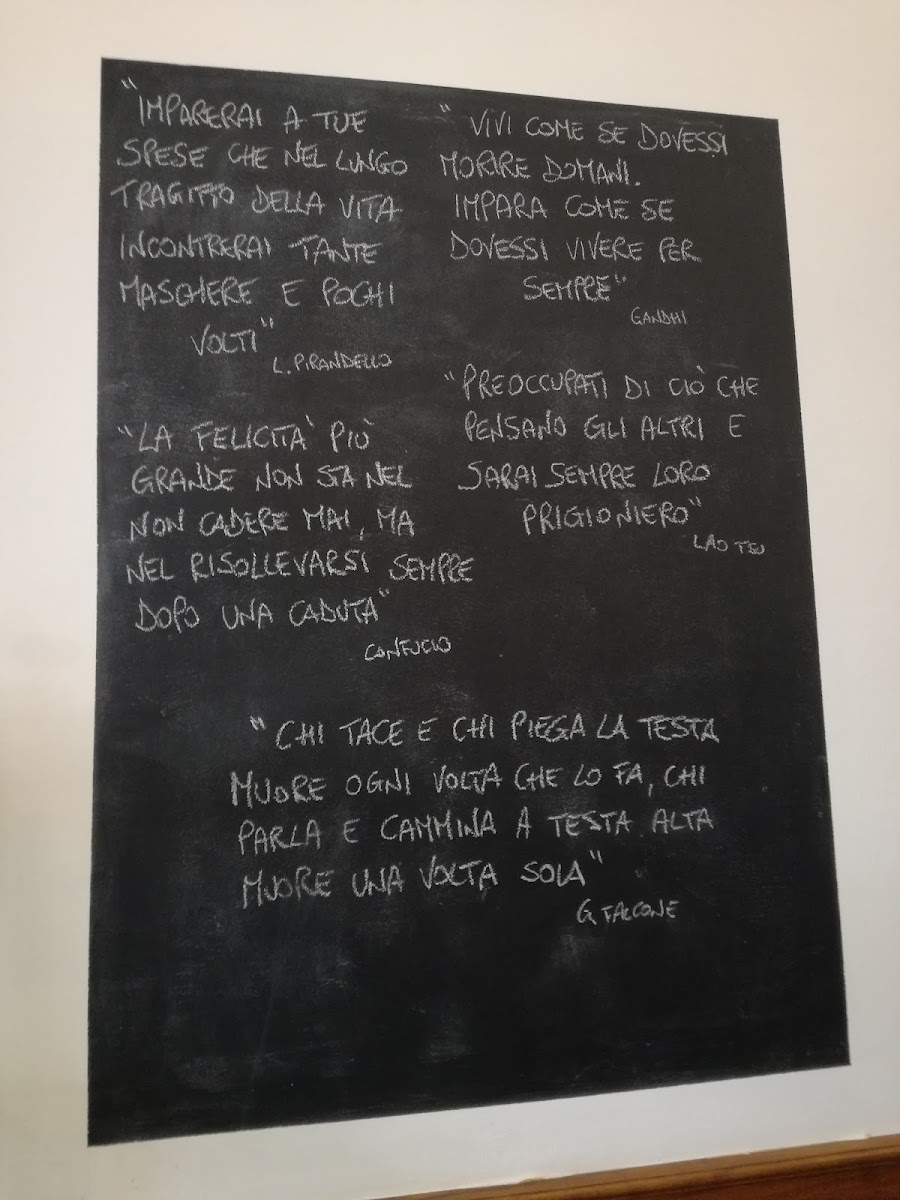 "IMPARERAI A TUE
SPESE CHE NEL LUNGO
TRAGITTO DELLA VITA
INCONTRERAI TANTE
MASCHERE E POCHI
VOLTI"
L. PIRANDELLO
"VIVI COME SE DOVESSI
MORIRE DOMANI.
IMPARA COME SE
DOVESSI VIVERE PER
SEMPRE"
GANDHI
"LA FELICITÀ PIÙ
GRANDE NON STA NEL
NON CADERE MAI, MA
NEL RISOLLEVARSI SEMPRE
DOPO UNA CADUTA"
CONFUCIO
"PREOCCUPATI DI CIÒ CHE
PENSANO GLI ALTRI E
SARAI SEMPRE LORO
PRIGIONIERO"
LAO TSU
"CHI TACE E CHI PIEGA LA TESTA
MUORE OGNI VOLTA CHE LO FA, CHI
PARLA E CAMMINA A TESTA ALTA
MUORE UNA VOLTA SOLA"
G. FALCONE